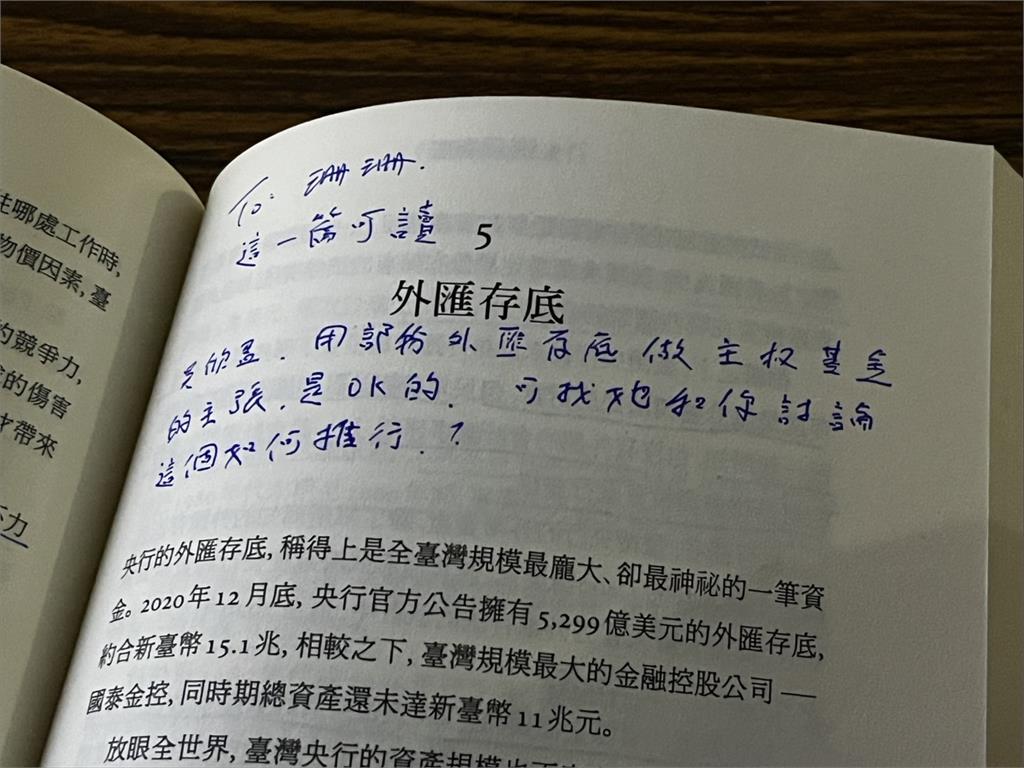 往哪處工作時,
物價因素, 臺
的競爭力,
的傷害
才帶來
不力
To: 珊珊.
這一篇可讀
5
外匯存底
用部份外匯存底做主权基金
的主張. 是OK的. 可找他和你討論
這個如何推行. ?
央行的外匯存底, 稱得上是全臺灣規模最龐大、卻最神祕的一筆資
金。2020年12月底, 央行官方公告擁有5,299億美元的外匯存底,
約合新臺幣15.1兆, 相較之下, 臺灣規模最大的金融控股公司——
國泰金控, 同時期總資產還未達新臺幣11兆元。
放眼全世界, 臺灣央行的資產規模也不